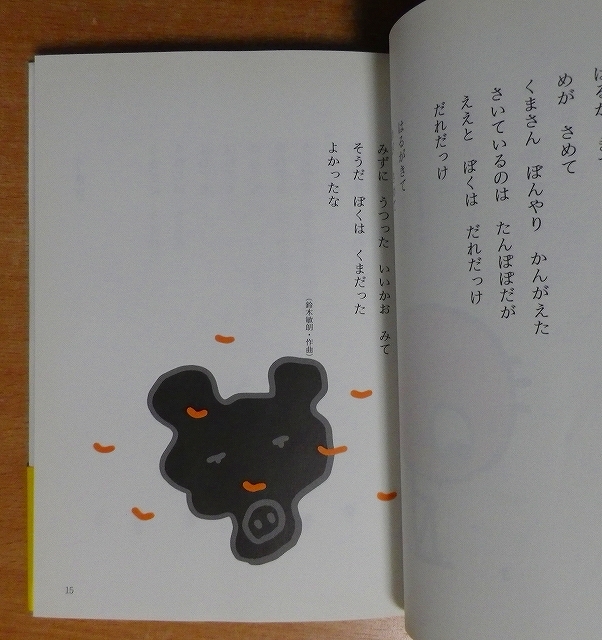 めが さめて
くまさん ぼんやり かんがえた
さいているのは たんぽぽだが
ええと ぼくは だれだっけ
だれだっけ
はるがきて
みずに うつった いいかお みて
そうだ ぼくは くまだった
よかったな
(鈴木敏朗・作曲)
15